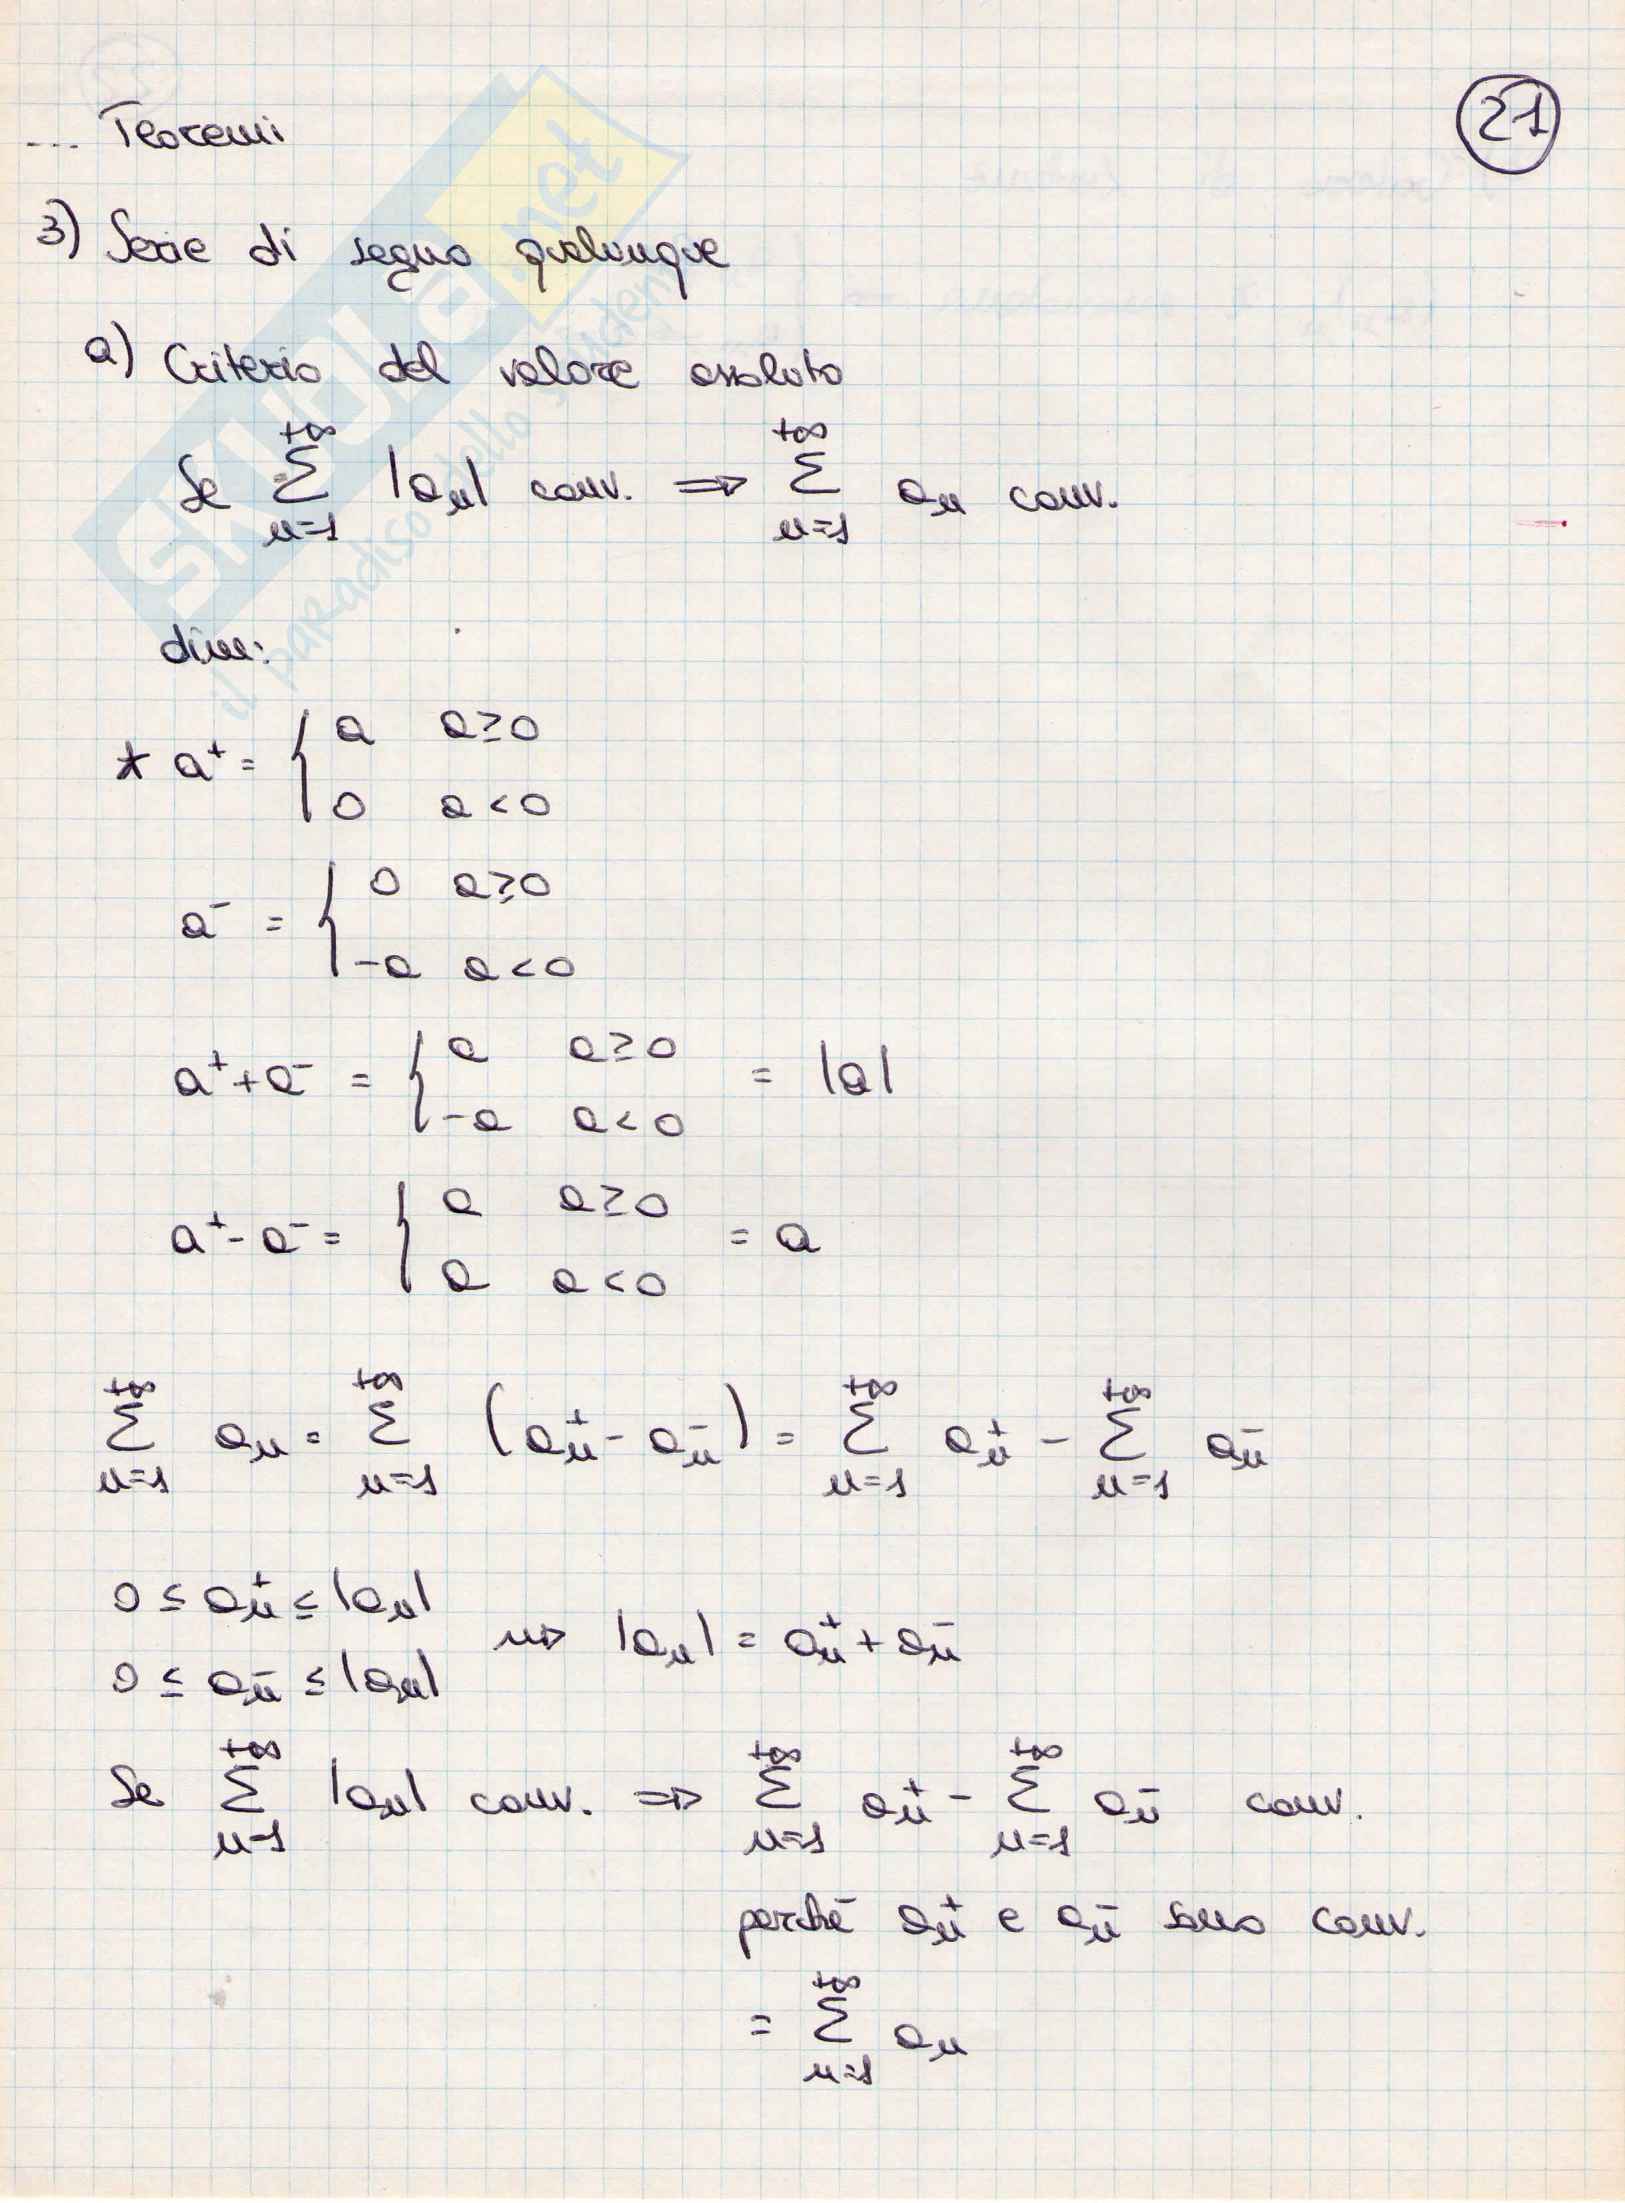 21
... Teoremi
3) Serie di segno qualunque
a) Criterio del valore assoluto
Se $\sum_{n=1}^{+\infty} |a_n|$ conv. ⇒ $\sum_{n=1}^{+\infty} a_n$ conv.
dim:
* $a^+ = \begin{cases} a & a \geq 0 \\ 0 & a < 0 \end{cases}$
$a^- = \begin{cases} 0 & a \geq 0 \\ -a & a < 0 \end{cases}$
$a^+ + a^- = \begin{cases} a & a \geq 0 \\ -a & a < 0 \end{cases} = |a|$
$a^+ - a^- = \begin{cases} a & a \geq 0 \\ a & a < 0 \end{cases} = a$
$\sum_{n=1}^{+\infty} a_n = \sum_{n=1}^{+\infty} (a_n^+ - a_n^-) = \sum_{n=1}^{+\infty} a_n^+ - \sum_{n=1}^{+\infty} a_n^-$
$0 \leq a_n^+ \leq |a_n|$
$0 \leq a_n^- \leq |a_n|$ ⇝ $|a_n| = a_n^+ + a_n^-$
Se $\sum_{n=1}^{+\infty} |a_n|$ conv. ⇒ $\sum_{n=1}^{+\infty} a_n^+ - \sum_{n=1}^{+\infty} a_n^-$ conv.
perché $a_n^+$ e $a_n^-$ sono conv.
$= \sum_{n=1}^{+\infty} a_n$
SKUOLA.net
il paradiso dello studente